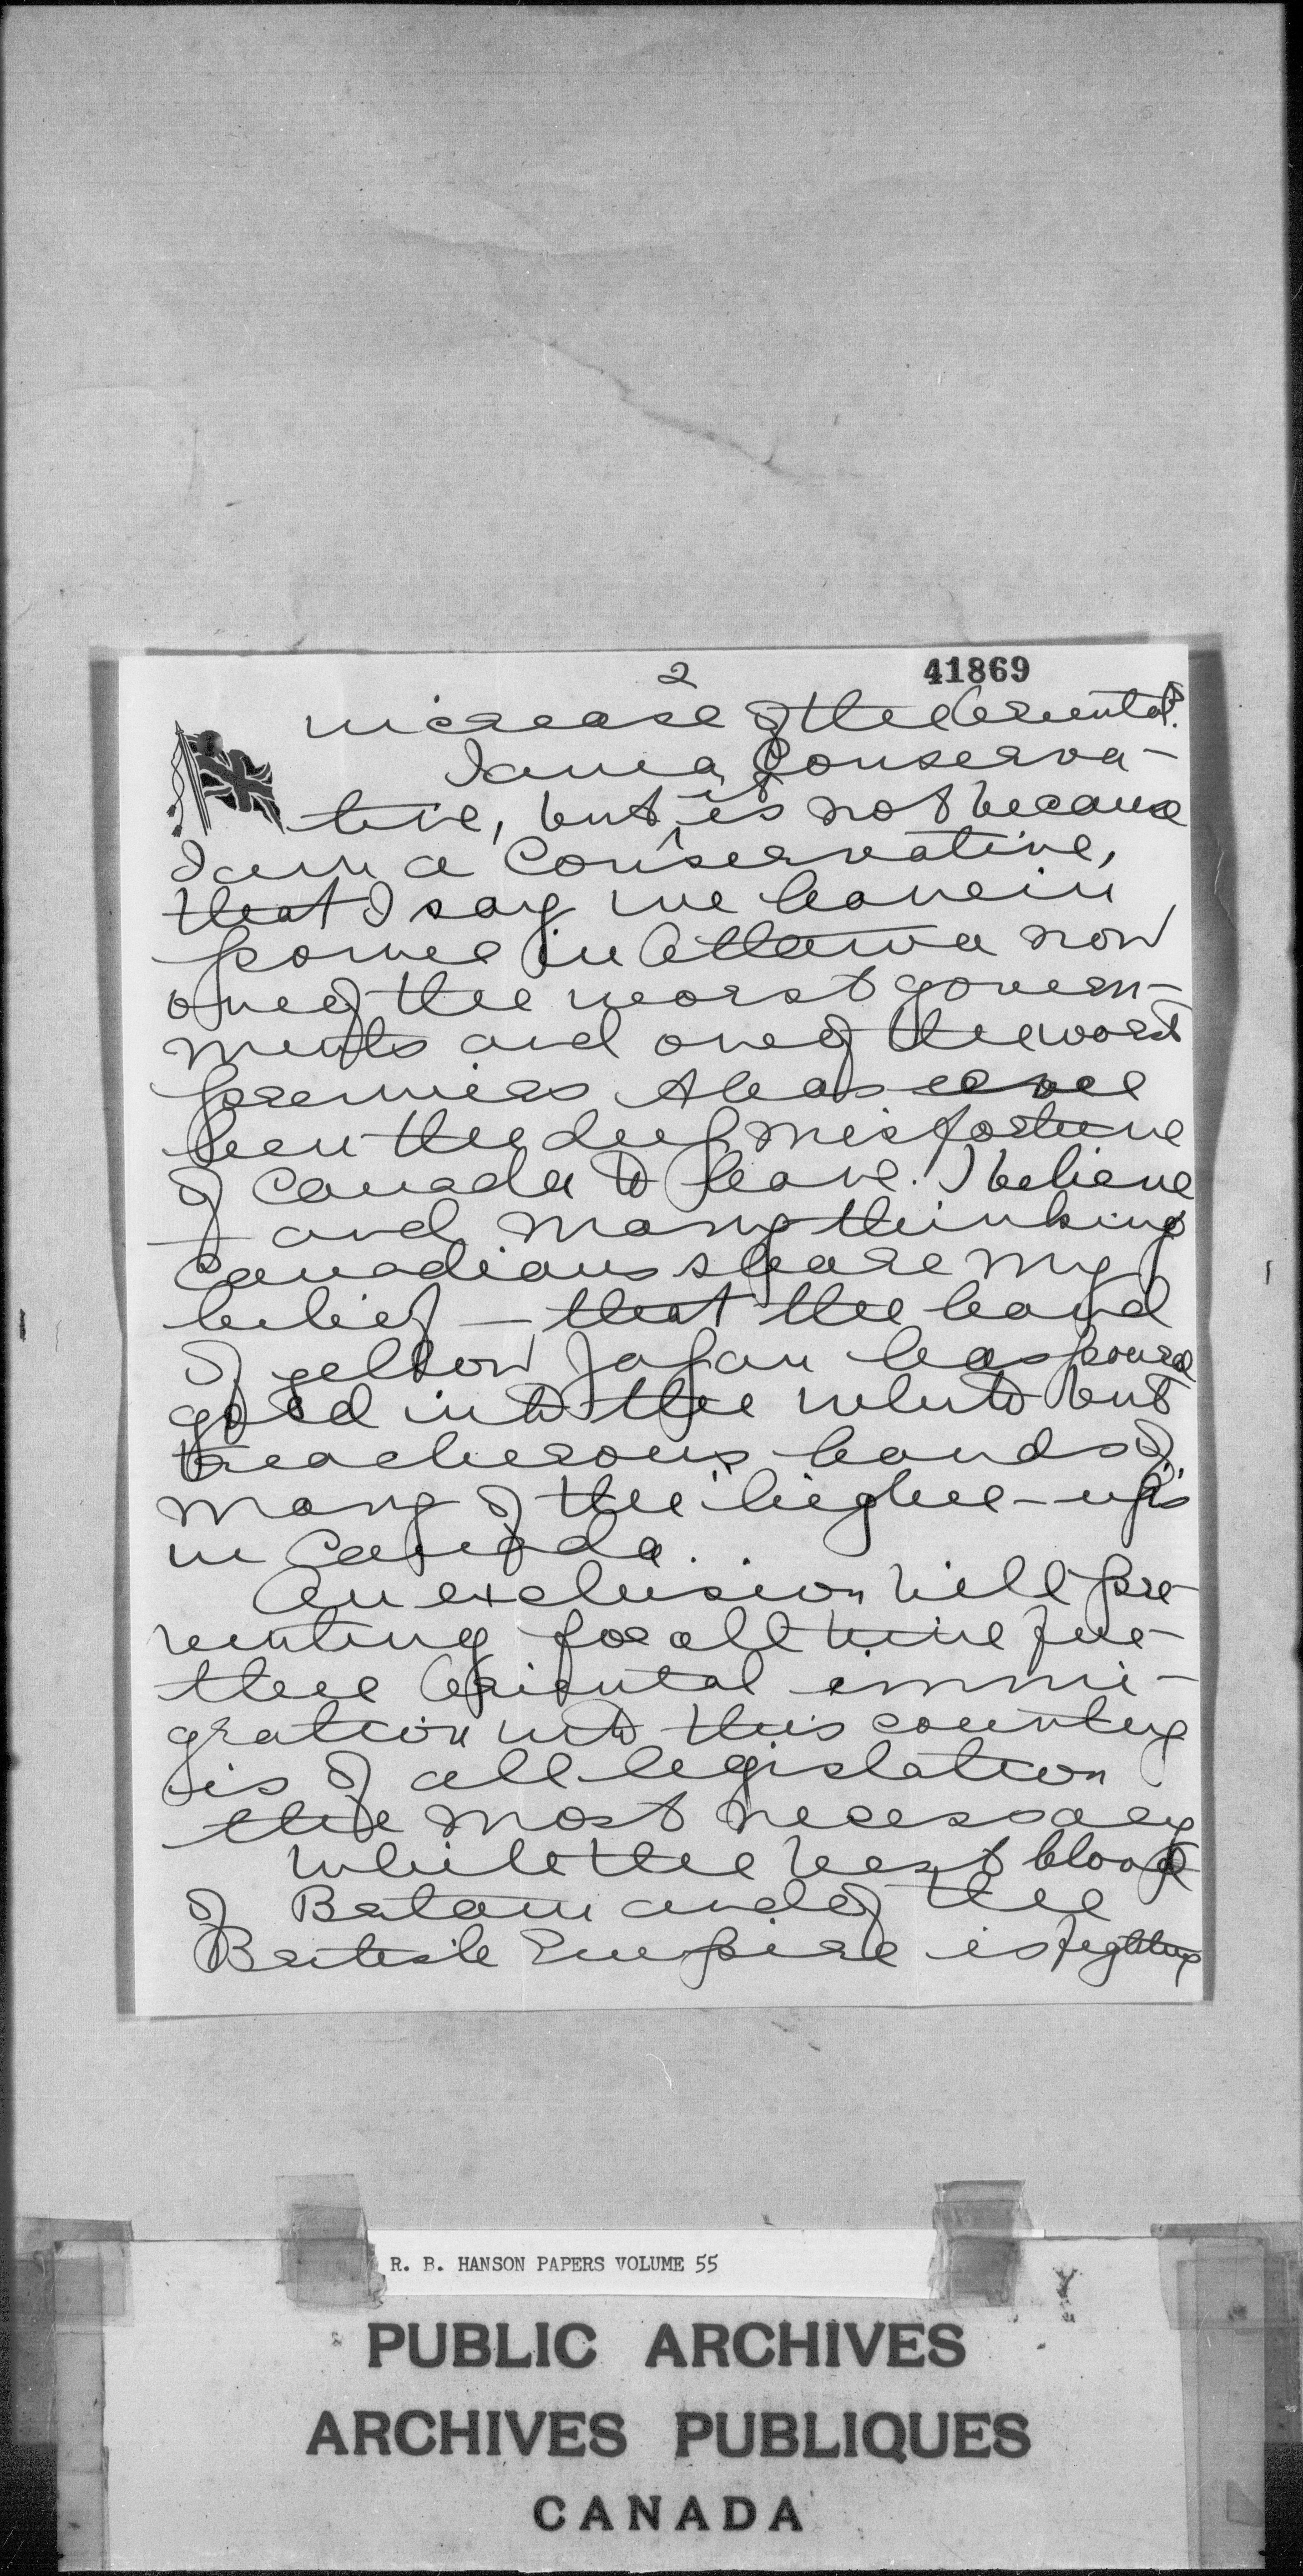 2
41869
increase of the Oriental?
I am a Conserva-
tive, but it is not because
I am a Conservative,
that I say we have in
power in Ottawa now
one of the worst govern-
ments and one of the worst
premiers it has ever
been the deep misfortune
of Canada to have. I believe
— and many thinking
Canadians share my
belief — that the hand
of yellow Japan has poured
gold into the white but
treacherous hands of
many of the 'higher-ups'
in Canada.
An exclusion bill pre-
venting for all time fur-
ther Oriental immi-
gration into this country
is of all legislation
the most necessary
While the best blood
of Britain and of the
British Empire is fighting
R. B. HANSON PAPERS VOLUME 55
PUBLIC ARCHIVES
ARCHIVES PUBLIQUES
CANADA